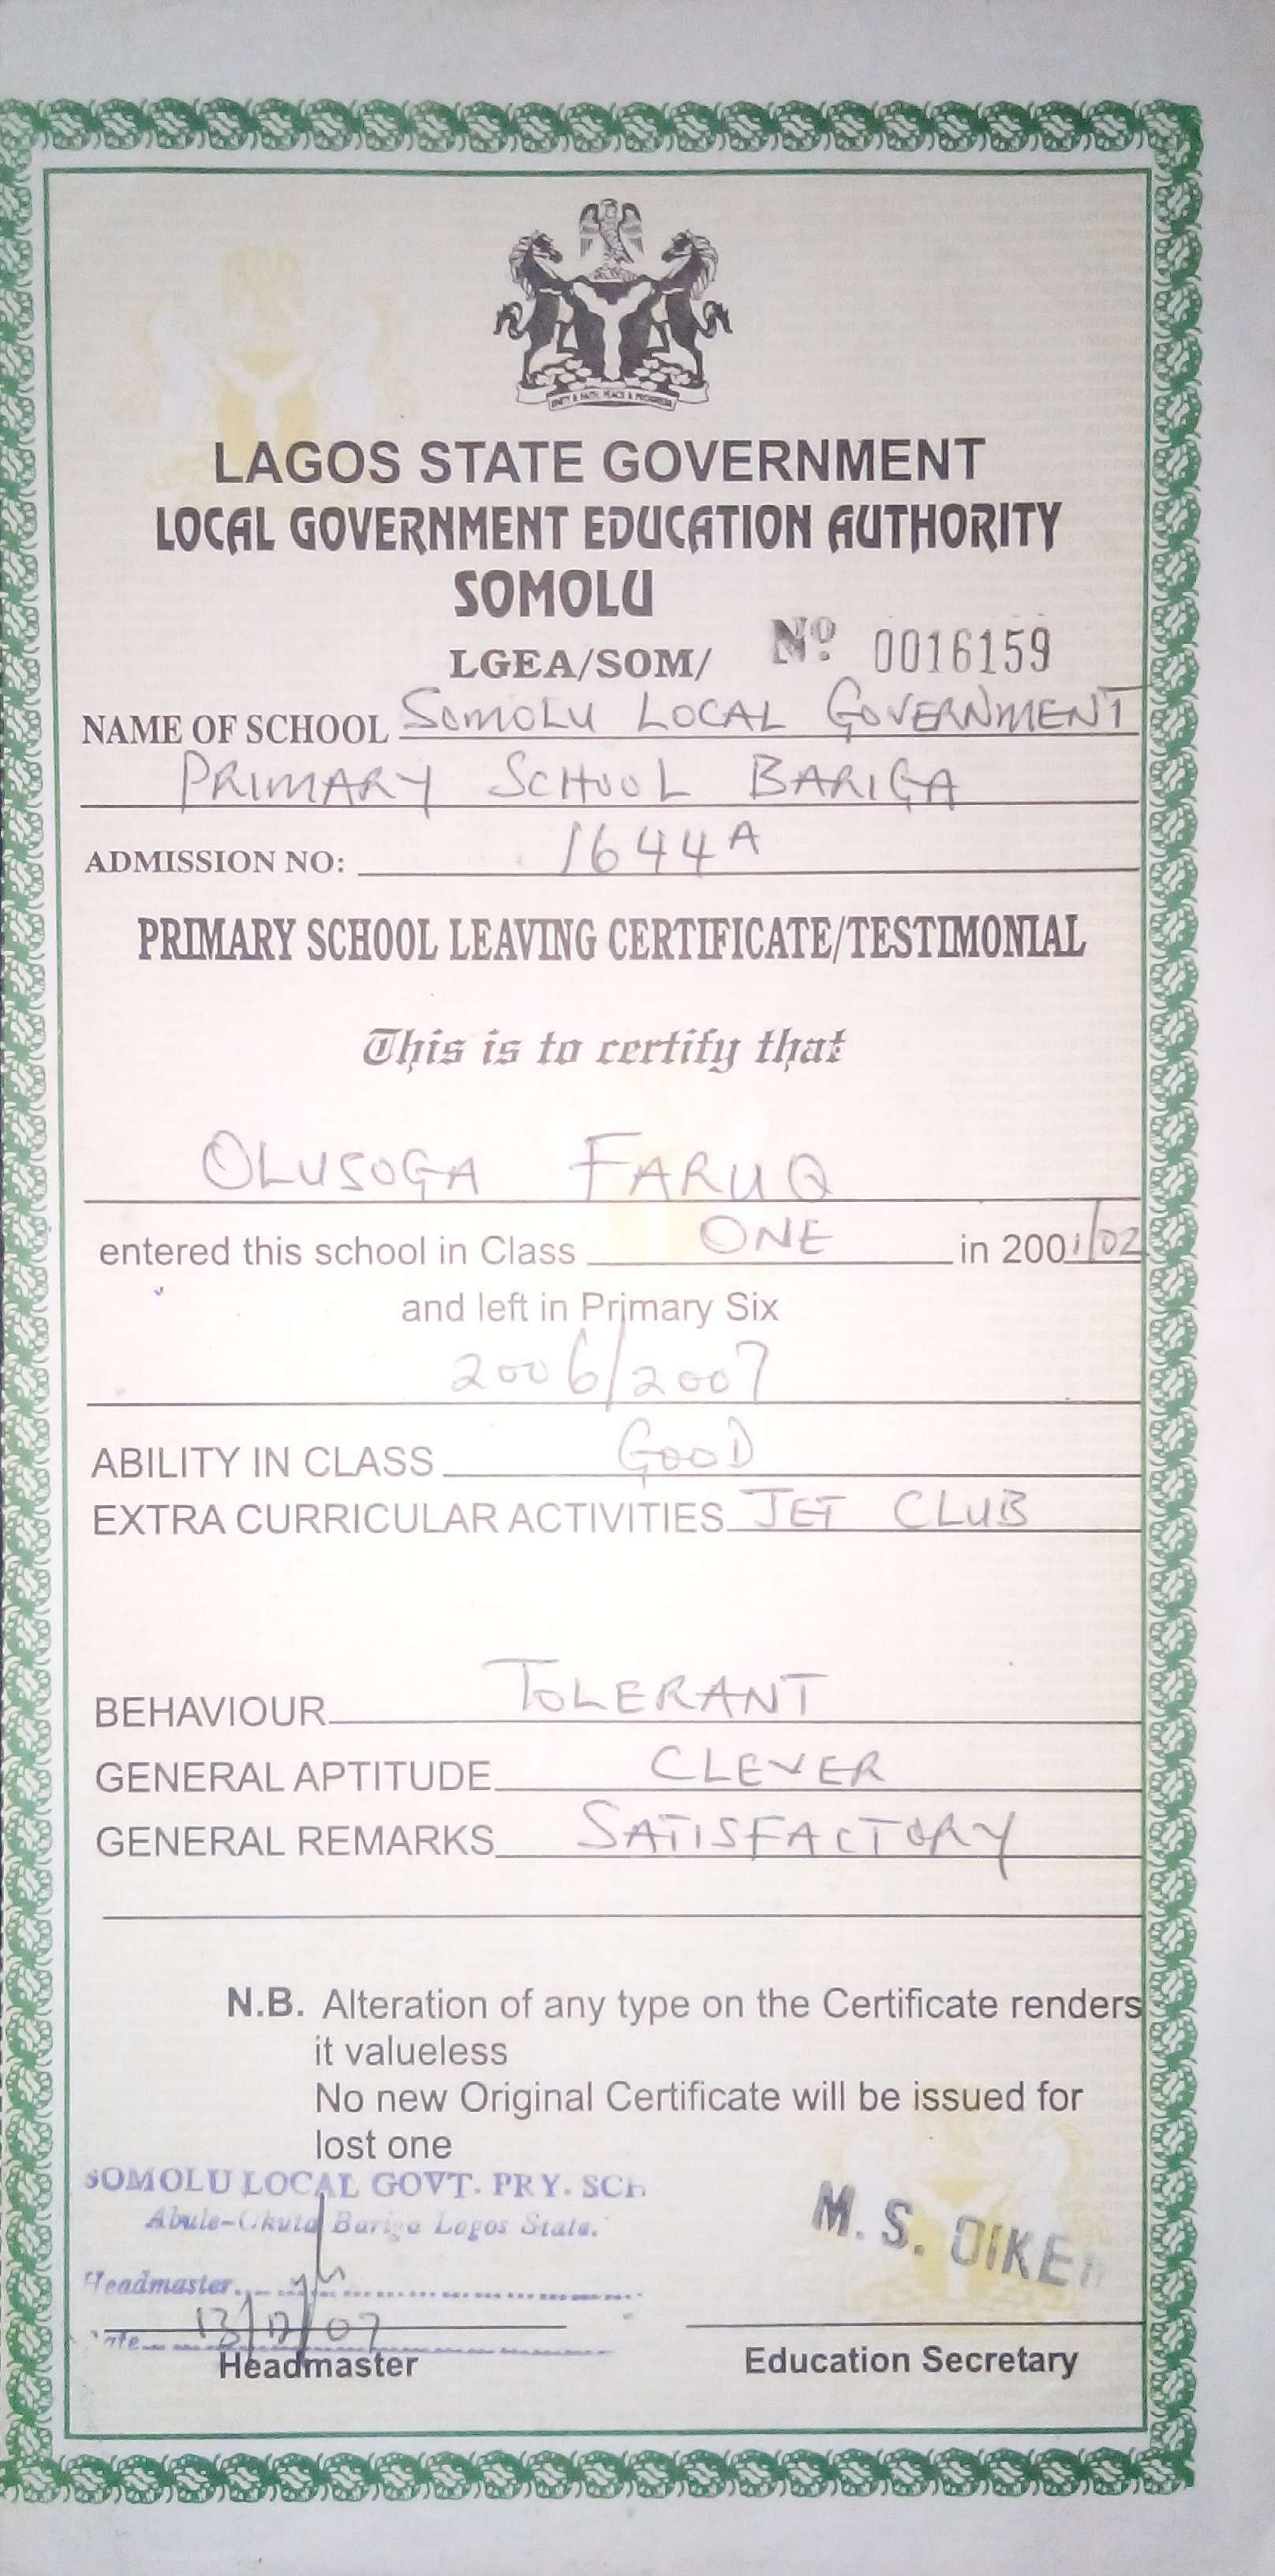 UNITY & FAITH, PEACE & PROGRESS
LAGOS STATE GOVERNMENT
LOCAL GOVERNMENT EDUCATION AUTHORITY
SOMOLU
LGEA/SOM/ Nº 0016159
NAME OF SCHOOL SOMOLU LOCAL GOVERNMENT
PRIMARY SCHOOL BARIGA
ADMISSION NO: 1644A
PRIMARY SCHOOL LEAVING CERTIFICATE/TESTIMONIAL
This is to certify that
OLUSOGA FARUQ
entered this school in Class ONE in 2001/02
and left in Primary Six
2006/2007
ABILITY IN CLASS GOOD
EXTRA CURRICULAR ACTIVITIES JET CLUB
BEHAVIOUR TOLERANT
GENERAL APTITUDE CLEVER
GENERAL REMARKS SATISFACTORY
N.B. Alteration of any type on the Certificate renders
it valueless
No new Original Certificate will be issued for
lost one
SOMOLU LOCAL GOVT. PRY. SCH
Abule-Okuta Bariga Lagos State.
M. S. OIKE
Headmaster
Date 13/12/07
Headmaster
Education Secretary